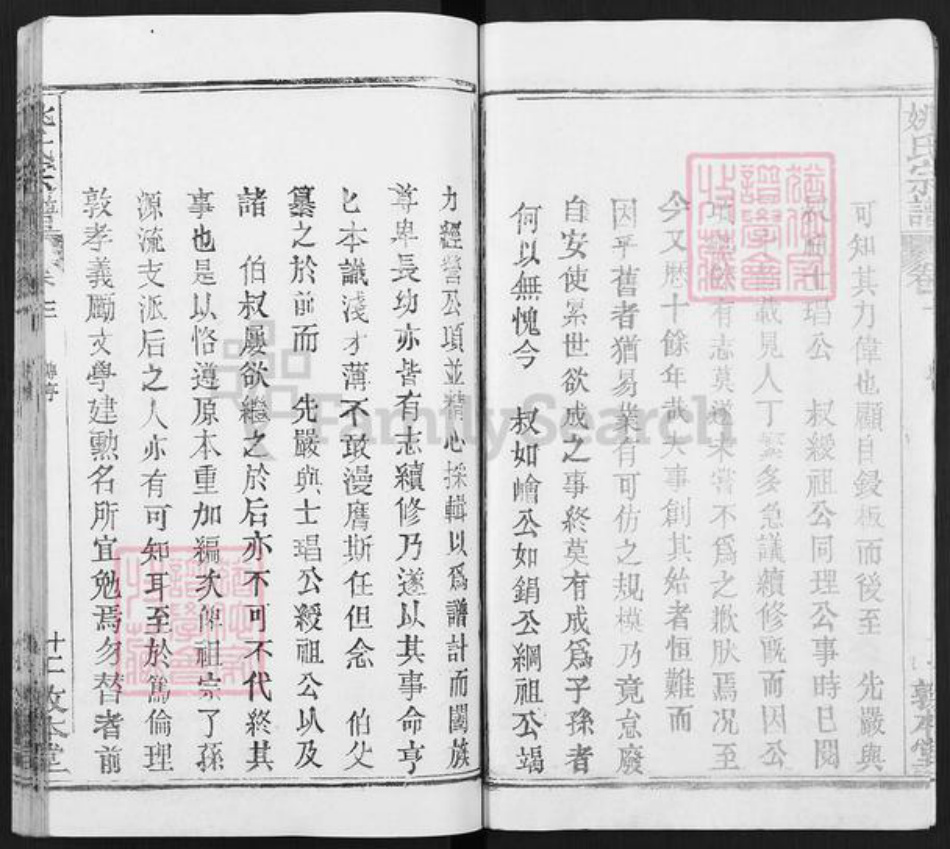 姚氏宗譜
可知其力偉也顧自鋟板而後至　先嚴與
士瑁公　叔綬祖公同理公事時已閱
載見人丁繁多急議續修旣而因公
有志莫遂未嘗不爲之歉肰焉况至
今又歷十餘年哉夫事創其始者恒難而
因乎舊者猶易業有可仿之規模乃竟怠廢
自安使累世欲成之事終莫有成爲子孫者
何以無愧今　叔如嶒公如錩公綱祖公竭
敦本堂
力經營公項並精心採輯以爲譜計而闔族
尊卑長幼亦皆有志續修乃遂以其事命亨
匕本識淺才薄不敢漫膺斯任但念　伯父
纂之於前而　先嚴與士瑁公綬祖公以及
諸　伯叔屢欲繼之於后亦不可不代終其
事也是以恪遵原本重加編次俾祖宗了孫
源流支派后之人亦有可知耳至於篤倫理
敦孝義勵文學建勲名所宜勉焉勿替者前
姚氏宗譜
十二敦本堂
FamilySearch